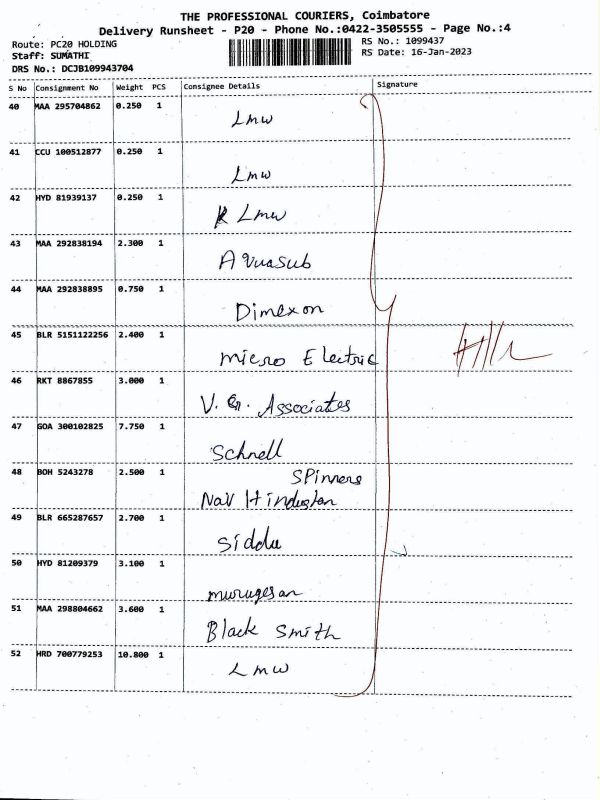 THE PROFESSIONAL COURIERS, Coimbatore
Delivery Runsheet - P20 - Phone No.:0422-3505555 - Page No.:4
Route: PC20 HOLDING
Staff: SUMATHI
DRS No.: DCJB109943704
RS No.: 1099437
RS Date: 16-Jan-2023
S No Consignment No Weight PCS Consignee Details Signature
40 MAA 295704862 0.250 1 Lmw
41 CCU 100512877 0.250 1 Lmw
42 HYD 81939137 0.250 1 Lmw
43 MAA 292838194 2.300 1 Aquasub
44 MAA 292838895 0.750 1 Dimexon
45 BLR 5151122256 2.400 1 micro Electric
46 RKT 8867855 3.000 1 V. G. Associates
47 GOA 300102825 7.750 1 Schnell
48 BOH 5243278 2.500 1 SPinners
Nav Hindustan
49 BLR 665287657 2.700 1 Siddu
50 HYD 81209379 3.100 1 murugesan
51 MAA 298804662 3.600 1 Black Smith
52 HRD 700779253 10.800 1 Lmw